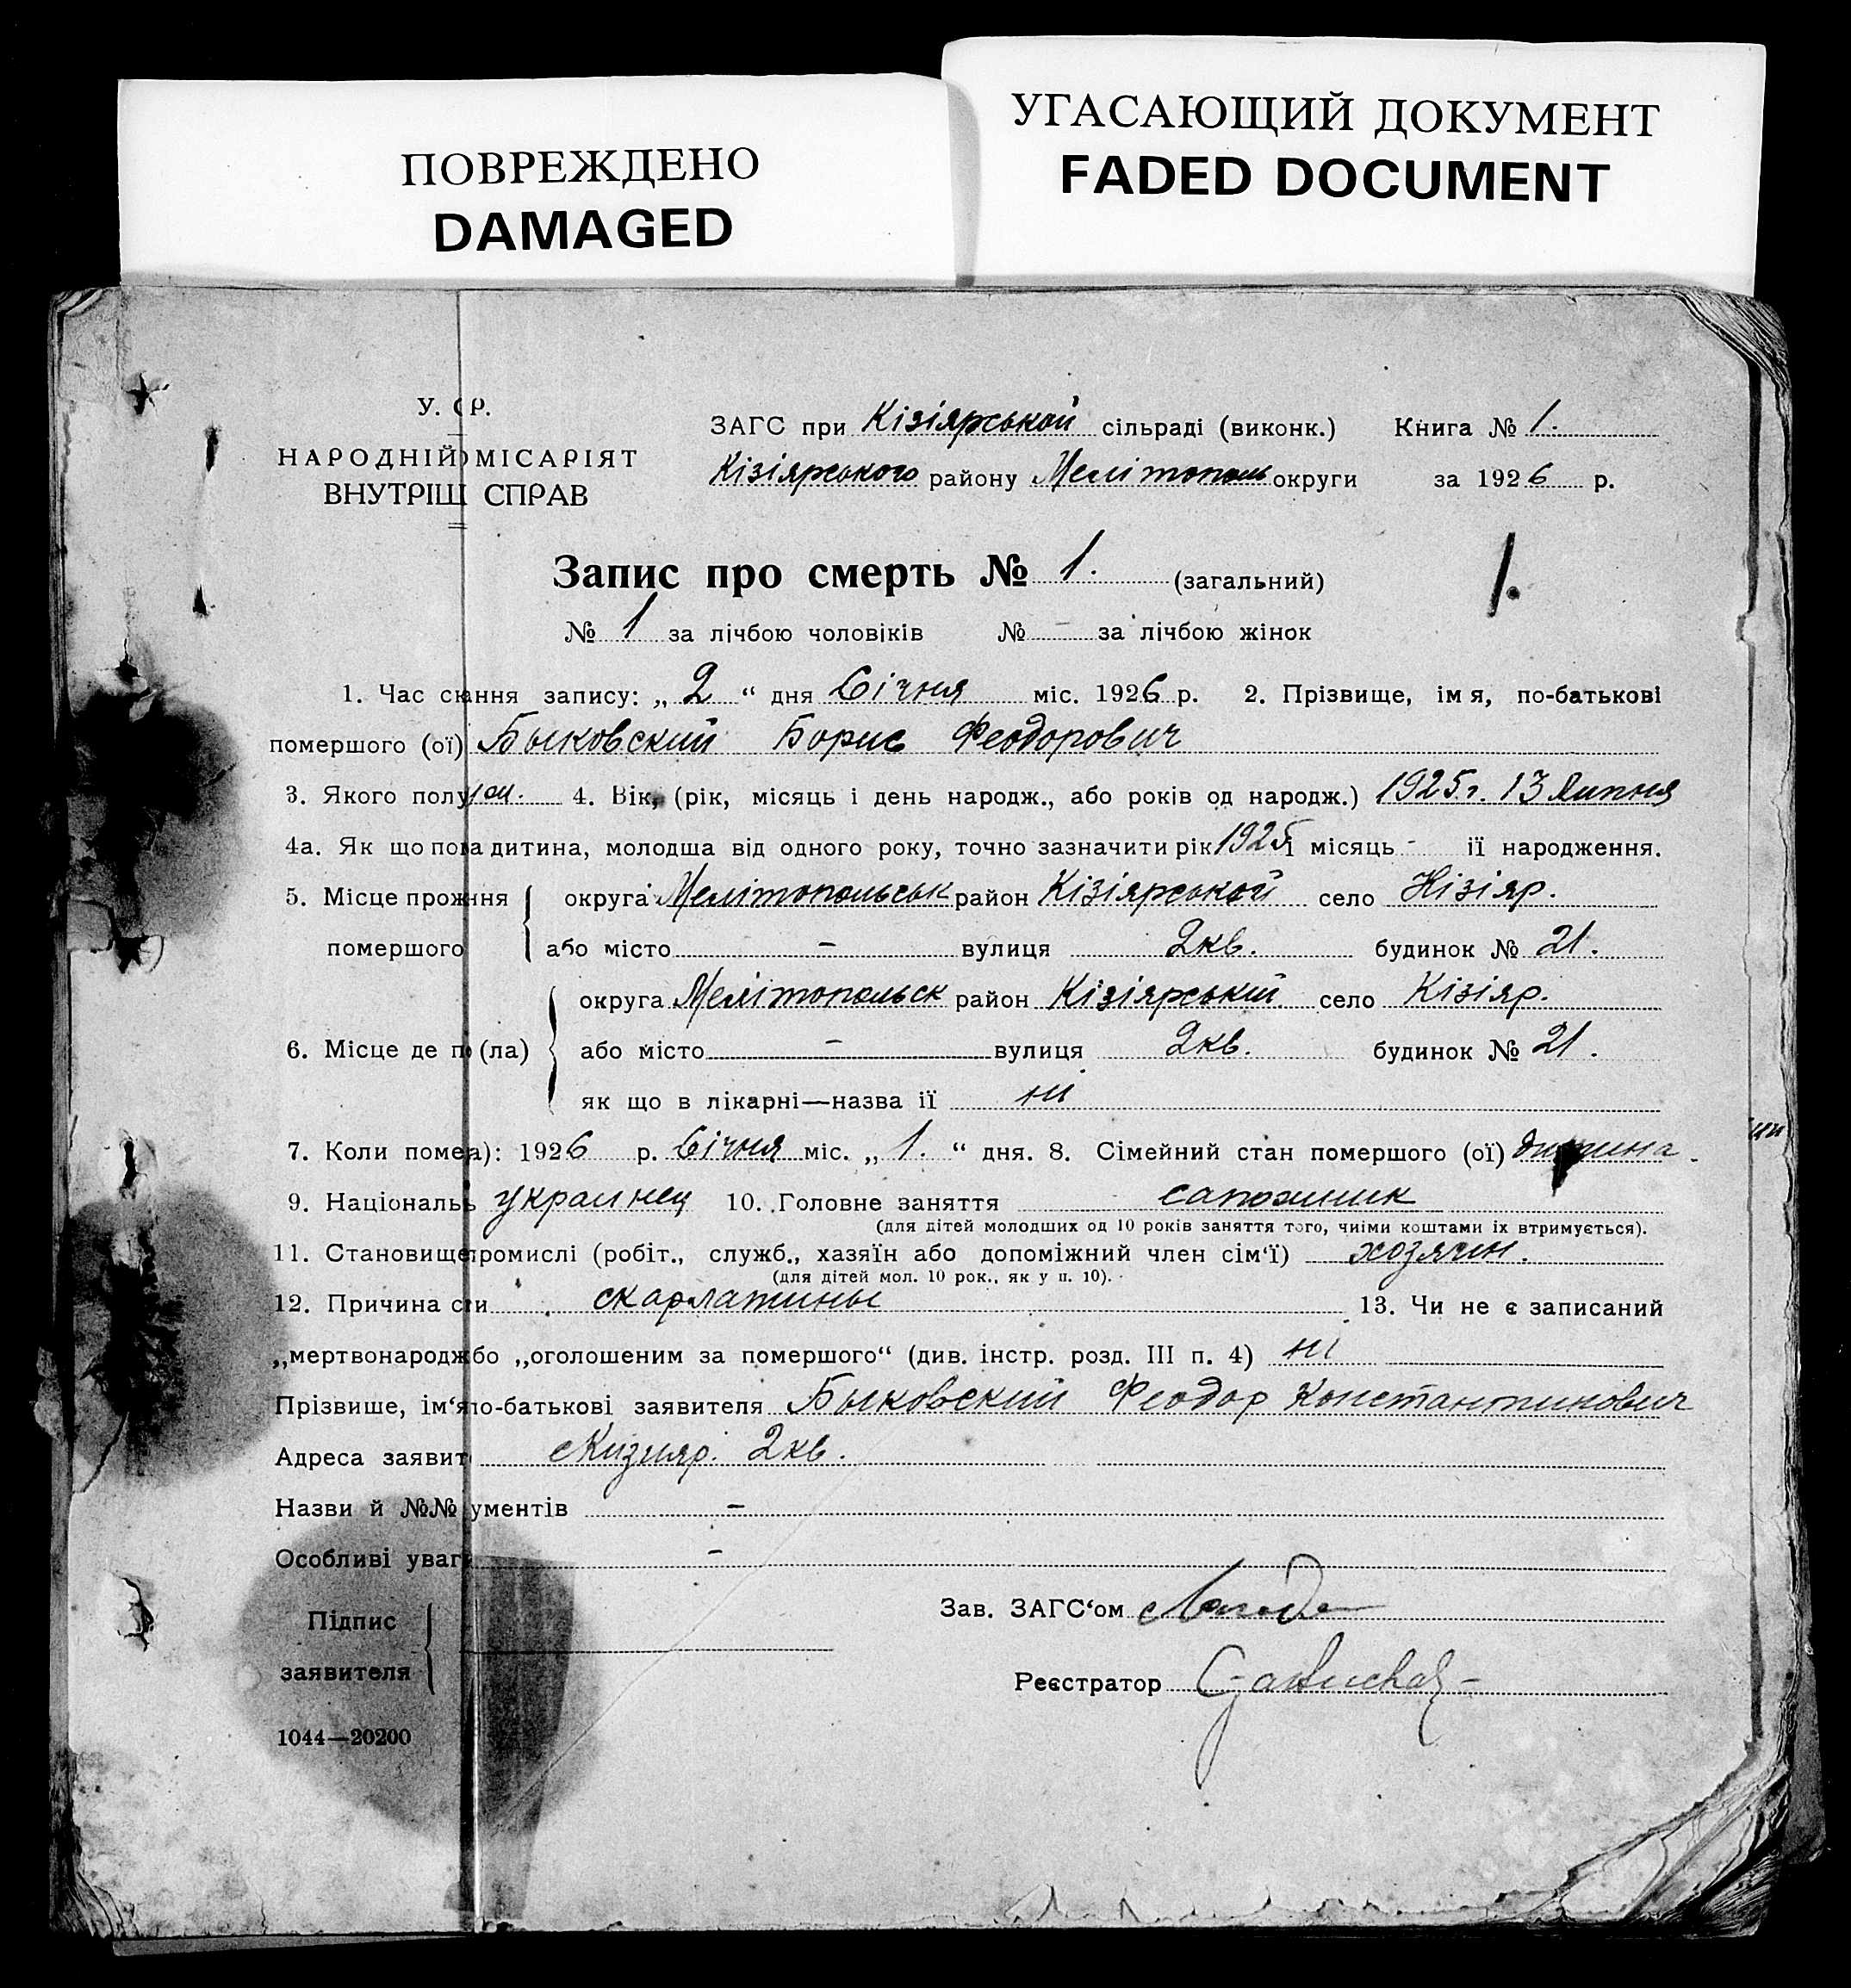 ПОВРЕЖДЕНО
DAMAGED
УГАСАЮЩИЙ ДОКУМЕНТ
FADED DOCUMENT
У. С Р.
НАРОДНІЙ МІСАРІЯТ
ВНУТРІШ СПРАВ
ЗАГС при Кізіярськой сільраді (виконк.) Книга № 1.
Кізіярського району Мелітополь округи за 1926 р.
Запис про смерть № 1. (загальний)
1.
№ 1 за лічбою чоловіків № - за лічбою жінок
1. Час ск ання запису: „ 2 “ дня Січня міс. 1926 р. 2. Прізвище, ім я, по-батькові
помершого (ої) Быковский Борис Феодорович
3. Якого полу м. 4. Вік, (рік, місяць і день народж., або років од народж.) 1925 г. 13 Липня
4а. Як що по а дитина, молодша від одного року, точно зазначити рік 1925 і місяць - її народження.
5. Місце прож ння округа Мелітопольськ район Кізіярськой село Кізіяр.
помершого або місто - вулиця 2кв. будинок № 21.
округа Мелітопольск район Кізіярський село Кізіяр.
6. Місце де п (ла) або місто - вулиця 2кв. будинок № 21.
як що в лікарні—назва її ні
7. Коли поме а): 1926 р. Січня міс. „ 1. “ дня. 8. Сімейний стан помершого (ої) дитина.
9. Національ украинец 10. Головне заняття сапожник
(для дітей молодших од 10 років заняття того, чиїми коштами їх втримується).
11. Становище промислі (робіт., служб., хазяїн або допоміжний член сім‘ї) хозячин.
(для дітей мол. 10 рок., як у п. 10).
12. Причина с и скарлатины 13. Чи не є записаний
„мертвонародж бо „оголошеним за помершого“ (див. інстр. розд. III п. 4) ні
Прізвише, ім‘я по-батькові заявителя Быковский Феодор Константинович
Адреса заявит с Кизияр. 2кв.
Назви й №№ ументів -
Особливі уваг -
Зав. ЗАГС‘ом
Підпис
заявителя
Реєстратор
1044—20200